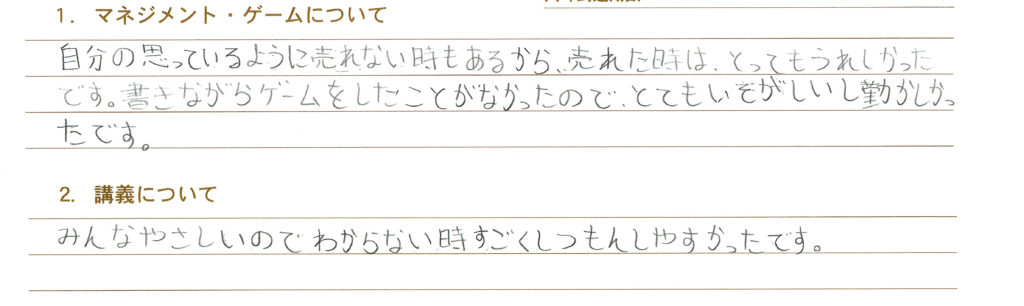 1. マネジメント・ゲームについて
自分の思っているように売れない時もあるから、売れた時は、とってもうれしかった
です。書きながらゲームをしたことがなかったので、とてもいそがしいし勤かしかっ
たです。
2. 講義について
みんなやさしいのでわからない時すごくしつもんしやすかったです。